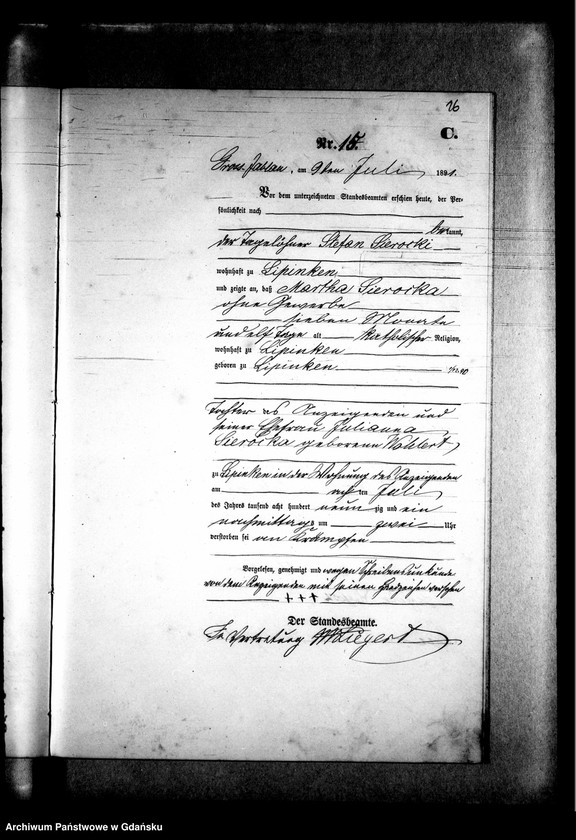 26
C.
Nr. 15.
Gross Jablau, am 9ten Juli 1891.
Vor dem unterzeichneten Standesbeamten erschien heute, der Per-
sönlichkeit nach
bekannt,
der Tagelöhner Stefan Sierocki
wohnhaft zu Lipinken
und zeigte an, daß Martha Sierocka
ohne Gewerbe
sieben Monate
und elf Tage alt katholischer Religion,
wohnhaft zu Lipinken
geboren zu Lipinken
Tochter des Anzeigenden und
seiner Ehefrau Julianna
Sierocka geborenen Wohlert
zu Lipinken in der Wohnung des Anzeigenden
am acht ten Juli
des Jahres tausend acht hundert neun zig und ein
nachmittags um zwei Uhr
verstorben sei an Krämpfen
Vorgelesen, genehmigt und wegen Schreibensunkunde
von dem Anzeigenden mit seinen Handzeichen versehen
+++
Der Standesbeamte.
In Vertretung
Archiwum Państwowe w Gdańsku